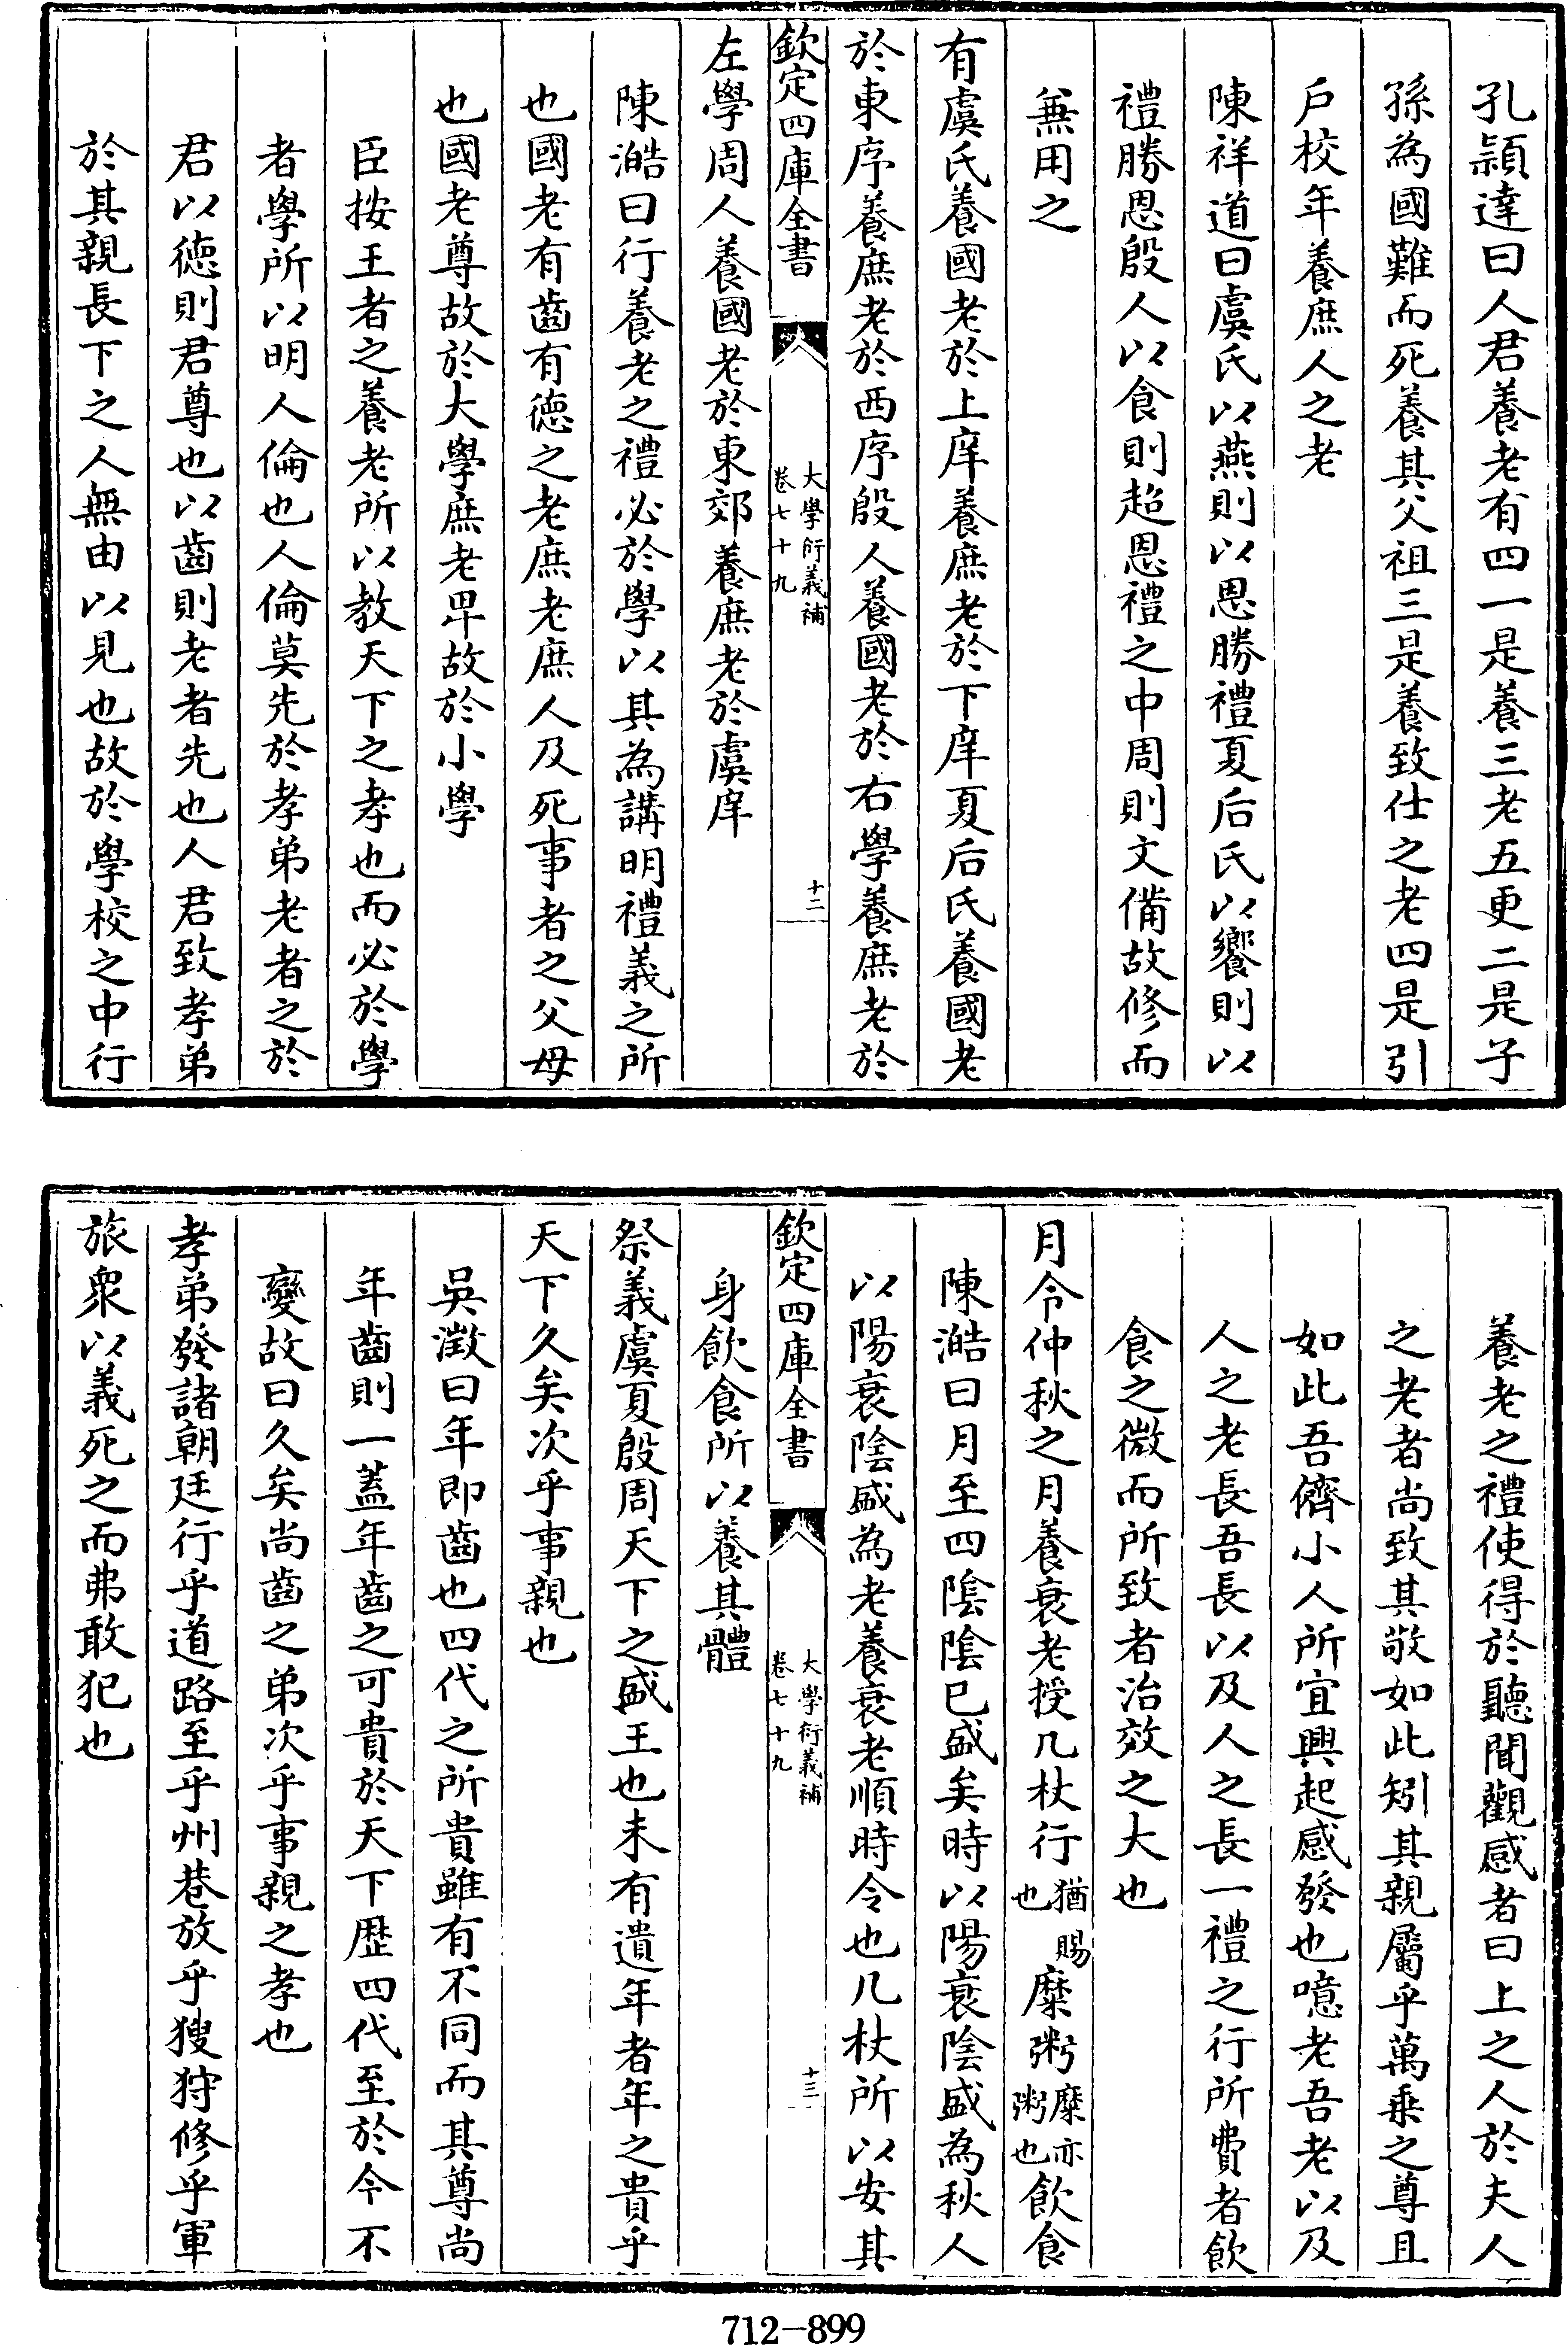 孔穎達曰人君養老有四一是養三老五更二是子
孫為國難而死養其父祖三是養致仕之老四是引
戶校年養庶人之老
陳祥道曰虞氏以燕則以恩勝禮夏后氏以饗則以
禮勝恩殷人以食則趨恩禮之中周則文備故修而
兼用之
有虞氏養國老於上庠養庶老於下庠夏后氏養國老
於東序養庶老於西序殷人養國老於右學養庶老於
欽定四庫全書
大學衍義補
卷七十九
十二
左學周人養國老於東郊養庶老於虞庠
陳澔曰行養老之禮必於學以其為講明禮義之所
也國老有齒有德之老庶老庶人及死事者之父母
也國老尊故於大學庶老卑故於小學
臣按王者之養老所以教天下之孝也而必於學
者學所以明人倫也人倫莫先於孝弟老者之於
君以德則君尊也以齒則老者先也人君致孝弟
於其親長下之人無由以見也故於學校之中行
養老之禮使得於聽聞觀感者曰上之人於夫人
之老者尚致其敬如此矧其親屬乎萬乘之尊且
如此吾儕小人所宜興起感發也噫老吾老以及
人之老長吾長以及人之長一禮之行所費者飲
食之微而所致者治效之大也
月令仲秋之月養衰老授几杖行猶賜也糜粥糜亦粥也飲食
陳澔曰月至四陰陰已盛矣時以陽衰陰盛為秋人
以陽衰陰盛為老養衰老順時令也几杖所以安其
欽定四庫全書
大學衍義補
卷七十九
十三
身飲食所以養其體
祭義虞夏殷周天下之盛王也未有遺年者年之貴乎
天下久矣次乎事親也
吳澂曰年即齒也四代之所貴雖有不同而其尊尚
年齒則一蓋年齒之可貴於天下歷四代至於今不
變故曰久矣尚齒之弟次乎事親之孝也
孝弟發諸朝廷行乎道路至乎州巷放乎獀狩修乎軍
旅眾以義死之而弗敢犯也
712-899